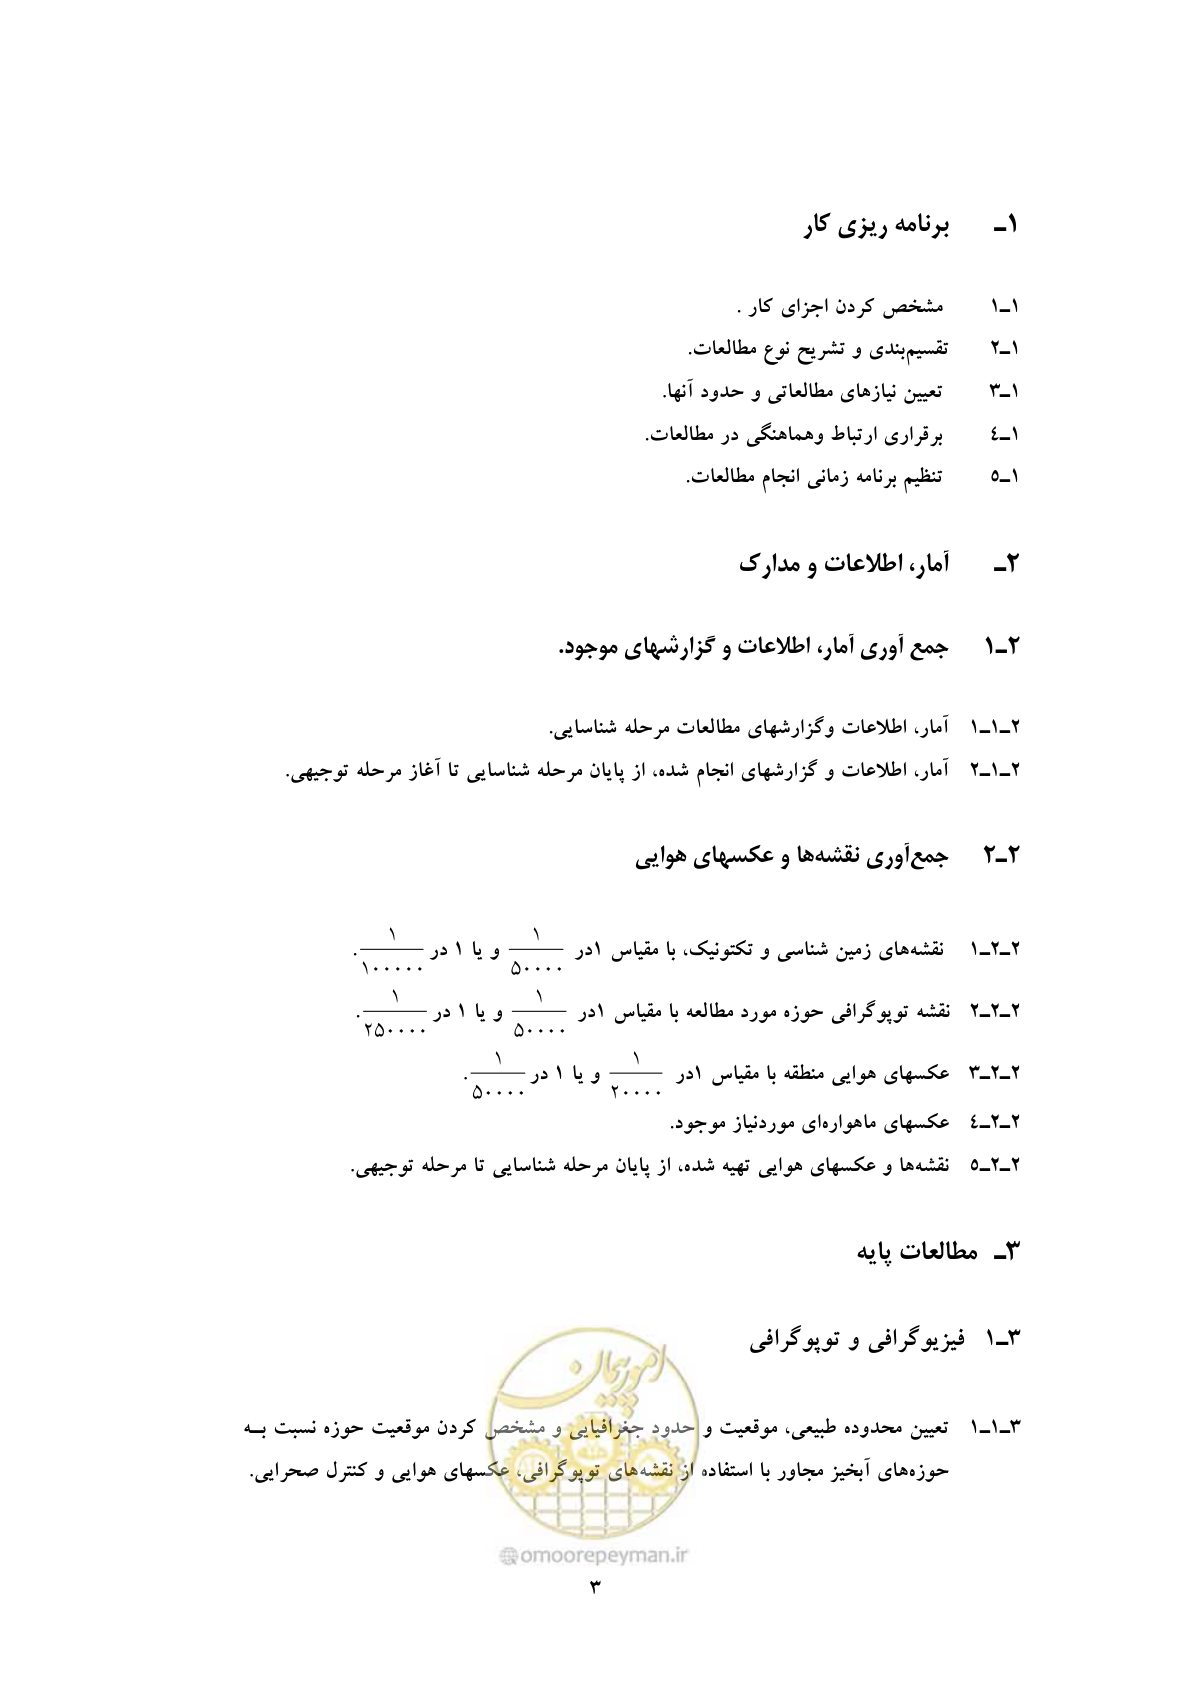 ۱ـ برنامه ریزی کار
۱ـ۱ مشخص کردن اجزای کار .
۱ـ۲ تقسیم‌بندی و تشریح نوع مطالعات.
۱ـ۳ تعیین نیازهای مطالعاتی و حدود آنها.
۱ـ٤ برقراری ارتباط وهماهنگی در مطالعات.
۱ـ٥ تنظیم برنامه زمانی انجام مطالعات.
۲ـ آمار، اطلاعات و مدارک
۲ـ۱ جمع آوری آمار، اطلاعات و گزارشهای موجود.
۲ـ۱ـ۱ آمار، اطلاعات وگزارشهای مطالعات مرحله شناسایی.
۲ـ۱ـ۲ آمار، اطلاعات و گزارشهای انجام شده، از پایان مرحله شناسایی تا آغاز مرحله توجیهی.
۲ـ۲ جمع‌آوری نقشه‌ها و عکسهای هوایی
۲ـ۲ـ۱ نقشه‌های زمین شناسی و تکتونیک، با مقیاس ۱در ۱/۵۰۰۰۰ و یا ۱ در ۱/۱۰۰۰۰۰.
۲ـ۲ـ۲ نقشه توپوگرافی حوزه مورد مطالعه با مقیاس ۱در ۱/۵۰۰۰۰ و یا ۱ در ۱/۲۵۰۰۰۰.
۲ـ۲ـ۳ عکسهای هوایی منطقه با مقیاس ۱در ۱/۲۰۰۰۰ و یا ۱ در ۱/۵۰۰۰۰.
۲ـ۲ـ٤ عکسهای ماهواره‌ای موردنیاز موجود.
۲ـ۲ـ٥ نقشه‌ها و عکسهای هوایی تهیه شده، از پایان مرحله شناسایی تا مرحله توجیهی.
۳ـ مطالعات پایه
۳ـ۱ فیزیوگرافی و توپوگرافی
امورپیمان
۳ـ۱ـ۱ تعیین محدوده طبیعی، موقعیت و حدود جغرافیایی و مشخص کردن موقعیت حوزه نسبت بـه
حوزه‌های آبخیز مجاور با استفاده از نقشه‌های توپوگرافی، عکسهای هوایی و کنترل صحرایی.
omoorepeyman.ir
۳